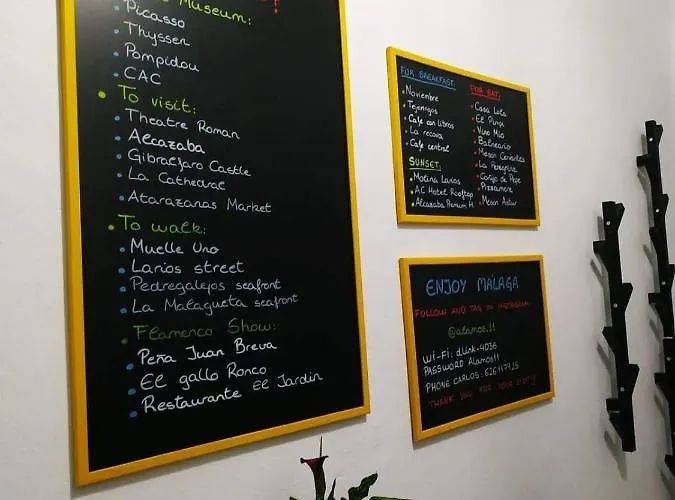 Museum:
Picasso
Thyssen
Pompidou
CAC
To visit:
Theatre Roman
Alcazaba
Gibralfaro Castle
La Cathedral
Atarazanas Market
To walk:
Muelle Uno
Larios street
Pedregalejos seafront
La Malagueta seafront
Flamenco Show:
Peña Juan Breva
El gallo Ronco
Restaurante El Jardin
FOR BREAKFAST:
Noviembre
Tejeringos
Cafe con libros
La recova
Cafe central
SUNSET:
Molina Larios
AC Hotel Rooftop
Alcazaba Premium H.
FOR EAT:
Casa Lola
El Pimpi
Vino Mio
Balneario
Meson Cervantes
La Peregrina
Cortijo de Pepe
Pizzamore
Meson Astur
ENJOY MÁLAGA
FOLLOW AND TAG IN INSTAGRAM
@alamos.11
Wi-Fi: dlink-4036
PASSWORD Alamos11
PHONE CARLOS: 626117925
THANK YOU FOR YOUR VISIT!!